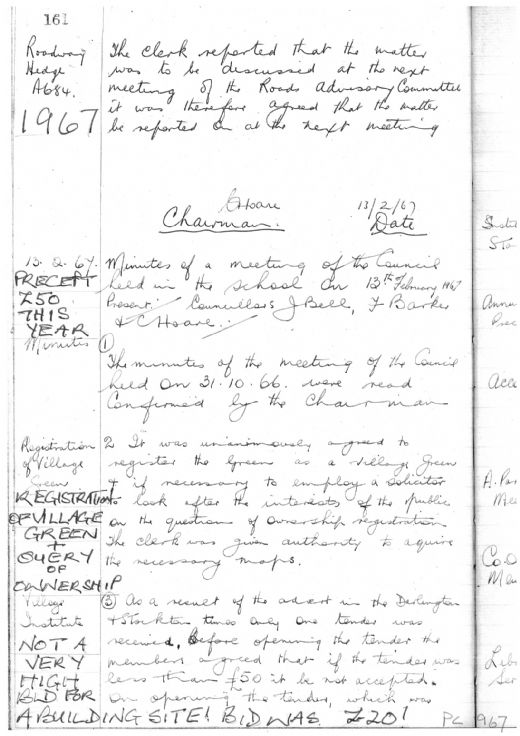 161
Roadway Hedge A684.
1967
The clerk reported that the matter
was to be discussed at the next
meeting of the Roads Advisory Committee
it was therefore agreed that the matter
be reported on at the next meeting
C Hoare 13/2/67
Chairman. Date
13.2.67.
PRECEPT
£50
THIS
YEAR
Minutes of a meeting of the Council
held in the school on 13th February 1967
Present. Councillors J Bell, F Barker
& C Hoare.
Minutes
1
The minutes of the meeting of the Council
held on 31.10.66. were read
Confirmed by the Chairman
Registration
of Village
Green
REGISTRATION
OF VILLAGE
GREEN
+
QUERY
OF
OWNERSHIP
2 It was unanimously agreed to
register the Green as a Village Green
& if necessary to employ a solicitor
to look after the interests of the public
on the question of ownership registration
The clerk was given authority to aquire
the necessary maps.
Village
Institute
NOT A
VERY
HIGH
BID FOR
3 As a result of the advert in the Darlington
& Stockton times only one tender was
received. Before opening the tender the
members agreed that if the tender was
less than £50 it be not accepted.
On opening the tender, which was
A BUILDING SITE! BID WAS £20!
PC 1967
Annu
Prec
Acc
A. Par
Mee
Co.O
Me
Lib
Ser